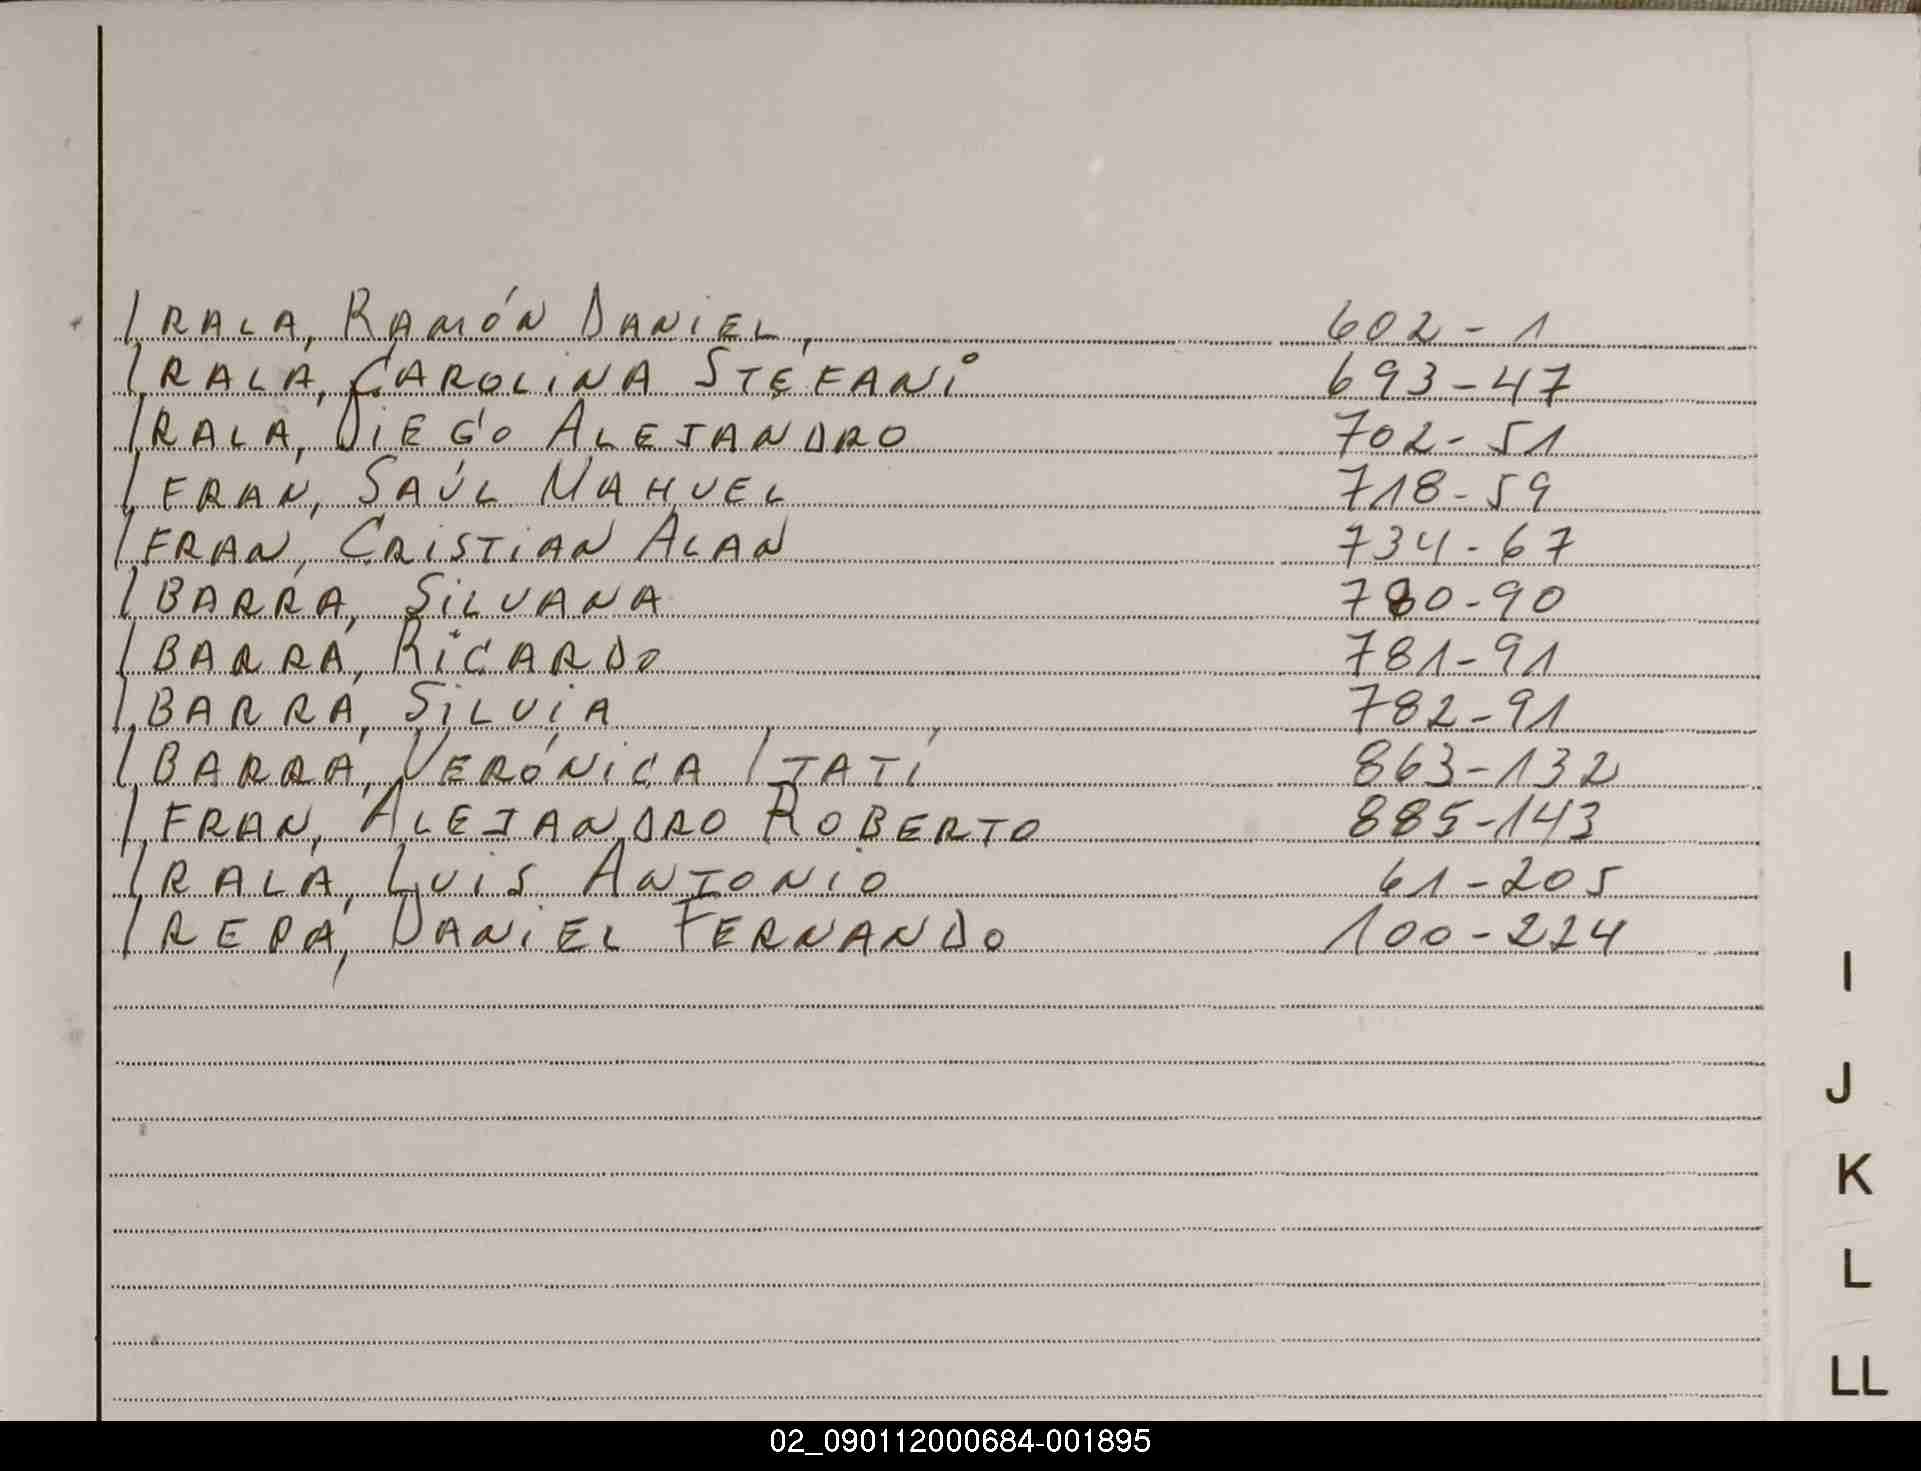 IRALA, RAMÓN DANIEL, 602-1
IRALA, CAROLINA STEFANI 693-47
IRALA, DIEGO ALEJANDRO 702-51
IFRAN, SAÚL NAHUEL 718-59
IFRAN, CRISTIAN ALAN 734-67
IBARRA, SILVANA 780-90
IBARRA, RICARDO 781-91
IBARRA, SILVIA 782-91
IBARRA, VERÓNICA ITATÍ 863-132
IFRAN, ALEJANDRO ROBERTO 885-143
IRALA, LUIS ANTONIO 61-205
IREPA, DANIEL FERNANDO 100-224
I
J
K
L
LL
02_090112000684-001895